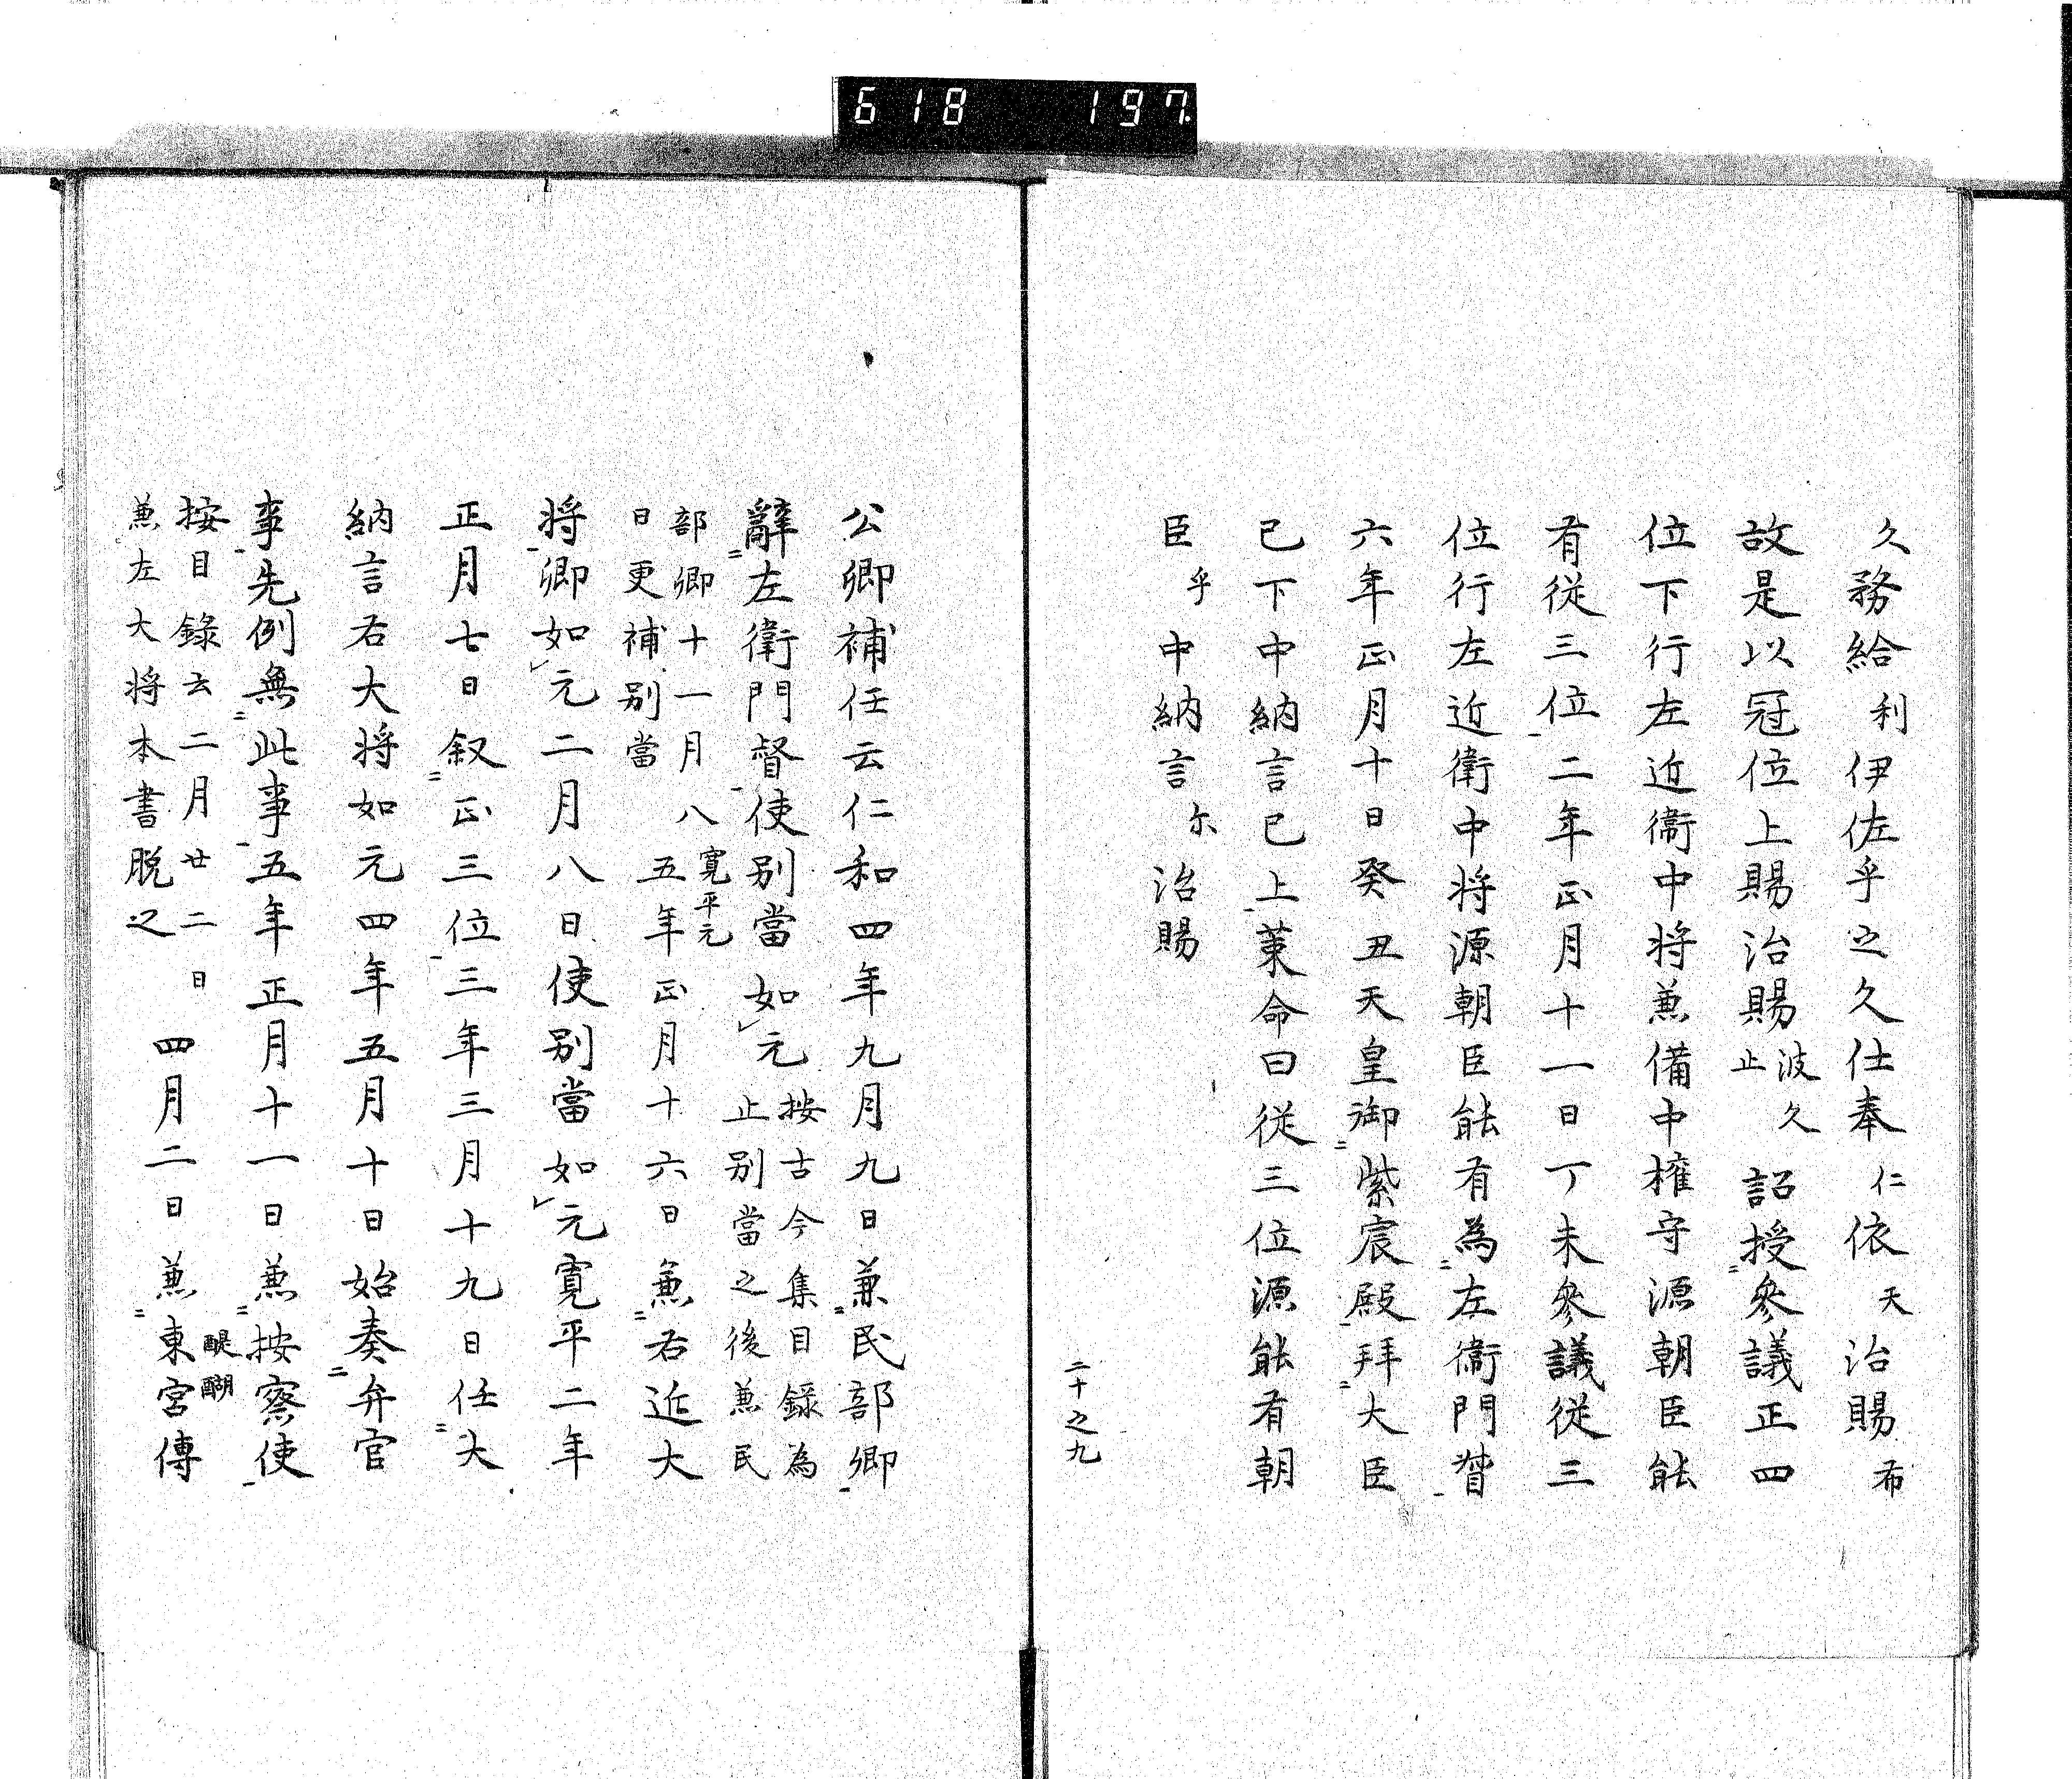 618 197
久務給利伊佐乎之久仕奉仁依天治賜希
故是以冠位上賜治賜波久止詔授參議正四
位下行左近衞中将兼備中権守源朝臣能
有従三位二年正月十一日丁未参議従三
位行左近衞中将源朝臣能有為左衞門督
六年正月十日癸丑天皇御紫宸殿拜大臣
已下中納言已上策命曰従三位源能有朝
臣乎中納言尓治賜
二十之九
公卿補任云仁和四年九月九日兼民部卿
辭左衛門督使别當如元按古今集目録為
止别當之後兼民
部卿十一月八
日更補别當寛平元五年正月十六日兼右近大
将卿如元二月八日使别當如元寛平二年
正月七日叙正三位三年三月十九日任大
納言右大将如元四年五月十日始奏弁官
事先例無此事五年正月十一日兼按察使
按目錄云二月廿二日
兼左大将本書脱之四月二日兼東宮傅
醍醐